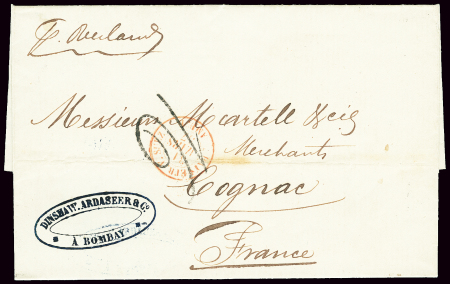 P. Overland
Messieurs Martell & cie
Merchants
Cognac
France
DINSHAW. ARDASEER & Co
A BOMBAY